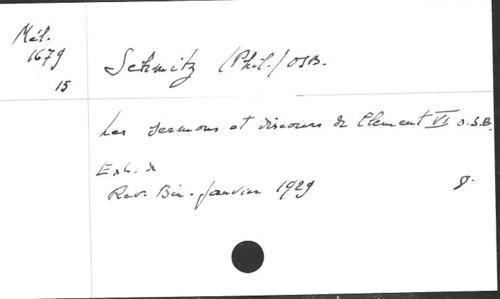 Mél.
1679
15
Schmitz (Phil.) OSB.
Les sermons et discours de Clement VI O.S.B.
Ext. de
Rev. Bén. Janvier 1929 8°